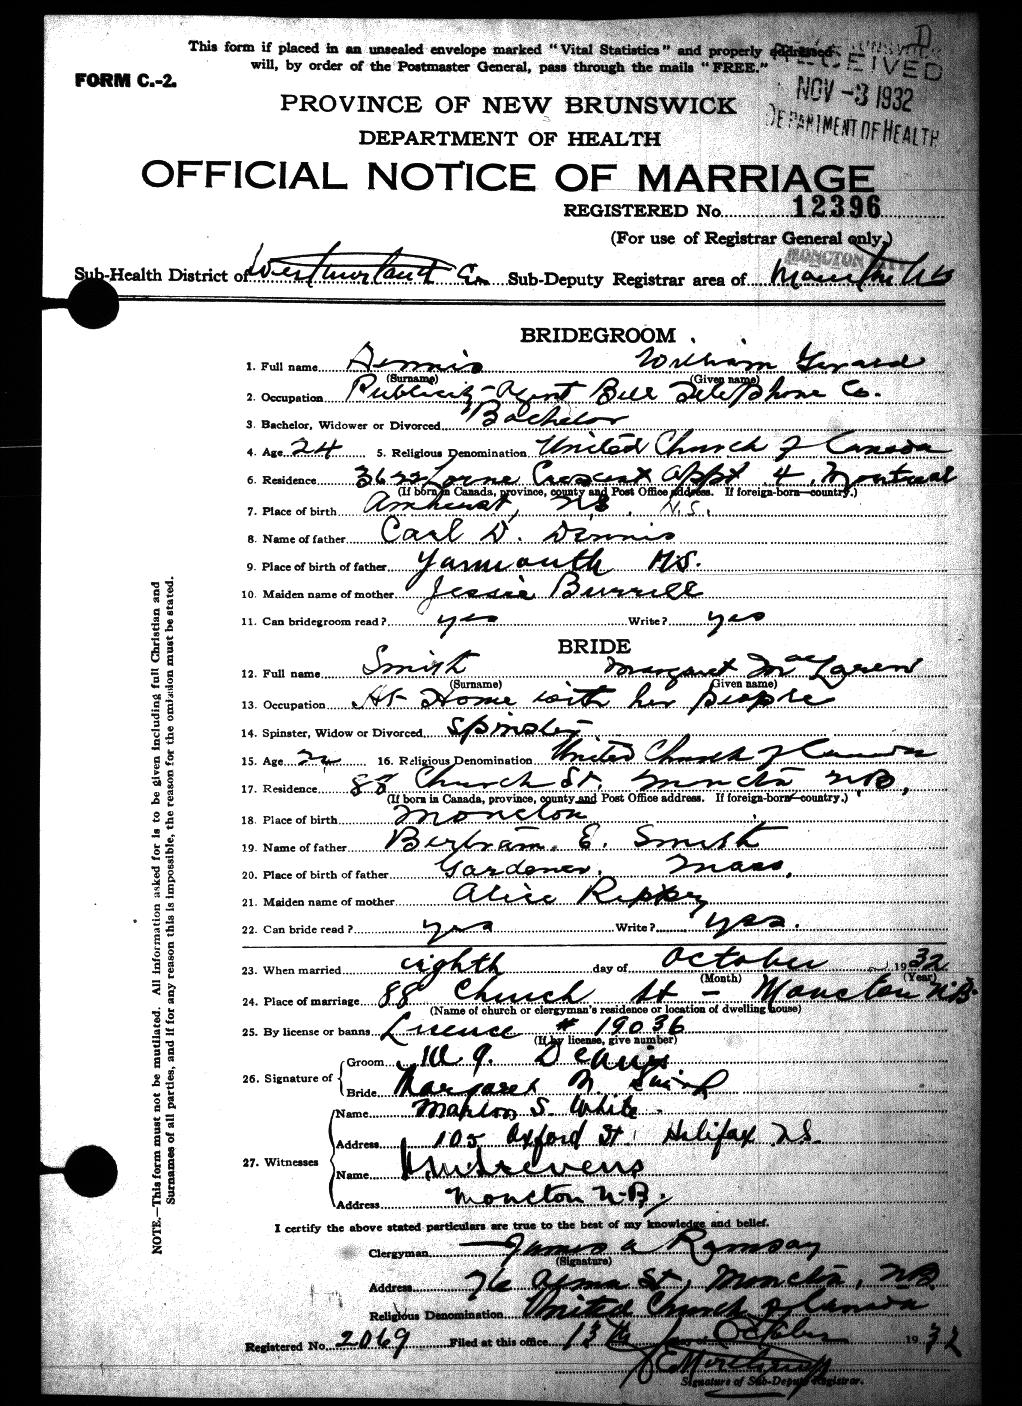 This form if placed in an unsealed envelope marked "Vital Statistics" and properly addressed
will, by order of the Postmaster General, pass through the mails "FREE."
RECEIVED
NOV -3 1932
DEPARTMENT OF HEALTH
FORM C.-2.
PROVINCE OF NEW BRUNSWICK
DEPARTMENT OF HEALTH
OFFICIAL NOTICE OF MARRIAGE
REGISTERED No. 12396
(For use of Registrar General only.)
MONCTON
Sub-Health District of Westmorland Co. Sub-Deputy Registrar area of Moncton NB
BRIDEGROOM
1. Full name Dennis William Gerard
(Surname) (Given name)
2. Occupation Publicity Agent Bell Telephone Co.
3. Bachelor, Widower or Divorced Bachelor
4. Age 24 5. Religious Denomination United Church of Canada
6. Residence 3622 Lorne Crescent Appt 4, Montreal
(If born in Canada, province, county and Post Office address. If foreign-born—country.)
7. Place of birth Amherst, NS. N.S.
8. Name of father Carl D. Dennis
9. Place of birth of father Yarmouth N.S.
10. Maiden name of mother Jessie Burrill
11. Can bridegroom read? yes Write? yes
BRIDE
12. Full name Smith Margaret MacLaren
(Surname) (Given name)
13. Occupation At Home with her people
14. Spinster, Widow or Divorced Spinster
15. Age 24 16. Religious Denomination United Church of Canada
17. Residence 88 Church St, Moncton NB,
(If born in Canada, province, county and Post Office address. If foreign-born—country.)
18. Place of birth Moncton
19. Name of father Bertram E. Smith
20. Place of birth of father Gardener, Mass.
21. Maiden name of mother Alice
22. Can bride read? yes Write? yes.
23. When married eighth day of October 1932
(Month) (Year)
24. Place of marriage 88 Church St - Moncton N.B.
(Name of church or clergyman's residence or location of dwelling house)
25. By license or banns Licence # 19036
(If by license, give number)
26. Signature of Groom W. G. Dennis
Bride Margaret M. Smith
27. Witnesses
Name Marion S. White
Address 105 Oxford St. Halifax N.S.
Name Stevens
Address Moncton N.B.
I certify the above stated particulars are true to the best of my knowledge and belief.
Clergyman James A Ramsay
(Signature)
Address 76 Alma St, Moncton, NB
Religious Denomination United Church of Canada
Registered No. 2069 Filed at this office 13th day of October 1932
Signature of Sub-Deputy Registrar.
NOTE.—This form must not be mutilated. All information asked for is to be given including full Christian and
Surnames of all parties, and if for any reason this is impossible, the reason for the omission must be stated.